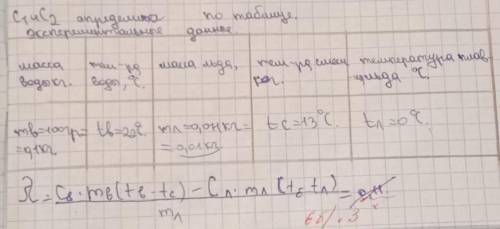 C₁ и C₂ определила по таблице.
экспериментальные данные
масса воды кг. тем-ра воды, °C. масса льда, кг. тем-ра смеси температура плав- льда °C.
mв=100гр= tв=20°C. mл=0,01кг= tс=13°C. tл=0°C.
=0,1кг =0,01кг
λ=Cв·mв(tв-tс)-Cл·mл(tс-tл)=
mл